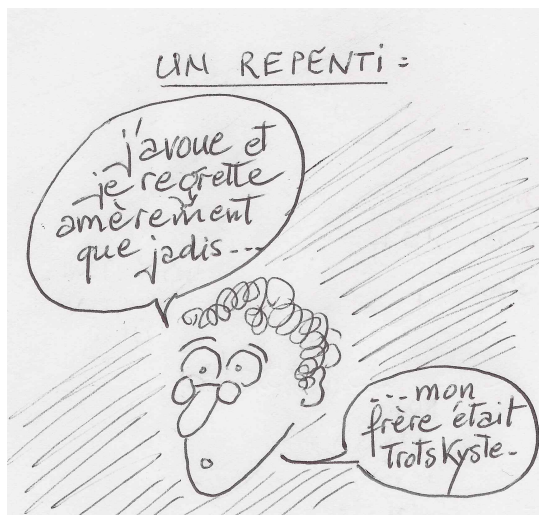 UN REPENTI :
j'avoue et
je regrette
amèrement
que jadis...
...mon
frère était
Trotskyste.